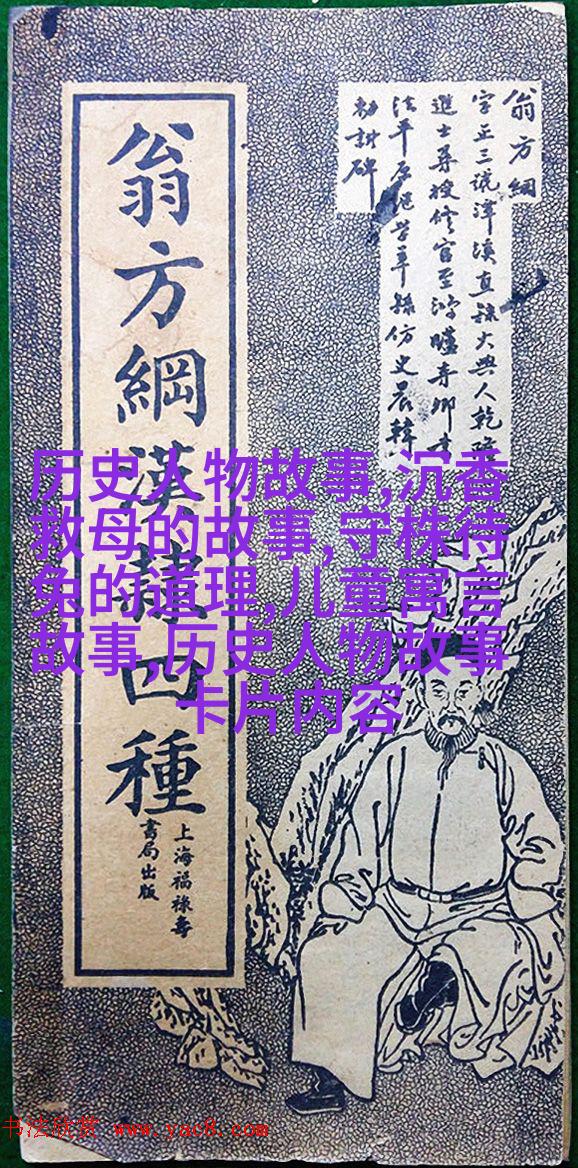 翁方綱
字正三號潭溪直隸大興人乾
進士尋授修官至鴻臚寺卿書
法平原繼學率
仿史晨韓
勑封碑
翁方綱漢隸四種
上海福祿壽
書局出版
历史人物故事,沉香
救母的故事,守株待
兔的道理,儿童寓言
故事,历史人物故事
卡片内容
书法欣赏 www.yac8.com